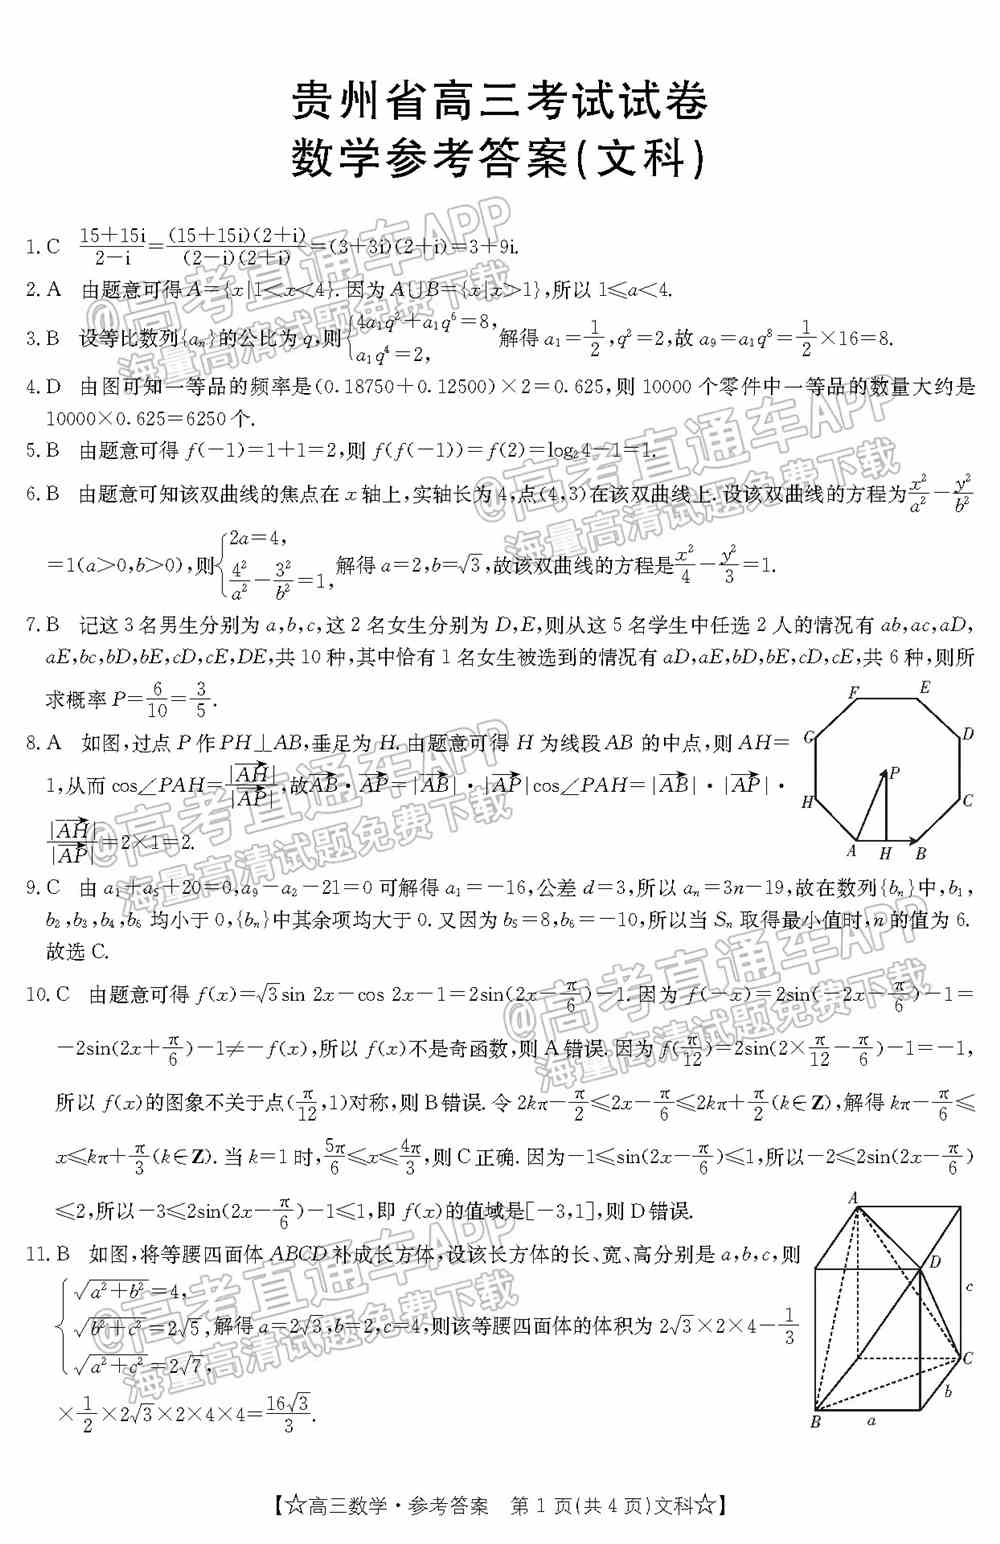 贵州省高三考试试卷
数学参考答案(文科)
1.C (15+15i)/(2-i)=((15+15i)(2+i))/((2-i)(2+i))=(3+3i)(2+i)=3+9i.
2.A 由题意可得A={x|1<x<4}.因为A∪B={x|x>1},所以1≤a<4.
3.B 设等比数列{aₙ}的公比为q,则{4a₁q²+a₁q⁶=8, a₁q⁴=2, 解得a₁=1/2,q²=2,故a₉=a₁q⁸=1/2×16=8.
4.D 由图可知一等品的频率是(0.18750+0.12500)×2=0.625,则10000个零件中一等品的数量大约是
10000×0.625=6250个.
5.B 由题意可得f(-1)=1+1=2,则f(f(-1))=f(2)=log₂4-1=1.
6.B 由题意可知该双曲线的焦点在x轴上,实轴长为4,点(4,3)在该双曲线上.设该双曲线的方程为x²/a²-y²/b²
=1(a>0,b>0),则{2a=4, 4²/a²-3²/b²=1, 解得a=2,b=√3,故该双曲线的方程是x²/4-y²/3=1.
7.B 记这3名男生分别为a,b,c,这2名女生分别为D,E,则从这5名学生中任选2人的情况有ab,ac,aD,
aE,bc,bD,bE,cD,cE,DE,共10种,其中恰有1名女生被选到的情况有aD,aE,bD,bE,cD,cE,共6种,则所
求概率P=6/10=3/5.
F E
G D
P
H C
A H B
8.A 如图,过点P作PH⊥AB,垂足为H.由题意可得H为线段AB的中点,则AH=
1,从而cos∠PAH=|AH→|/|AP→|,故AB→·AP→=|AB→|·|AP→|cos∠PAH=|AB→|·|AP→|·
|AH→|/|AP→|=2×1=2.
9.C 由a₁+a₅+20=0,a₉-a₂-21=0可解得a₁=-16,公差d=3,所以aₙ=3n-19,故在数列{bₙ}中,b₁,
b₂,b₃,b₄,b₆均小于0,{bₙ}中其余项均大于0.又因为b₅=8,b₆=-10,所以当Sₙ取得最小值时,n的值为6.
故选C.
10.C 由题意可得f(x)=√3sin 2x-cos 2x-1=2sin(2x-π/6)-1.因为f(-x)=2sin(-2x-π/6)-1=
-2sin(2x+π/6)-1≠-f(x),所以f(x)不是奇函数,则A错误.因为f(π/12)=2sin(2×π/12-π/6)-1=-1,
所以f(x)的图象不关于点(π/12,1)对称,则B错误.令2kπ-π/2≤2x-π/6≤2kπ+π/2(k∈Z),解得kπ-π/6≤
x≤kπ+π/3(k∈Z).当k=1时,5π/6≤x≤4π/3,则C正确.因为-1≤sin(2x-π/6)≤1,所以-2≤2sin(2x-π/6)
≤2,所以-3≤2sin(2x-π/6)-1≤1,即f(x)的值域是[-3,1],则D错误.
11.B 如图,将等腰四面体ABCD补成长方体,设该长方体的长、宽、高分别是a,b,c,则
{√(a²+b²)=4,
√(b²+c²)=2√5, 解得a=2√3,b=2,c=4,则该等腰四面体的体积为2√3×2×4-1/3
√(a²+c²)=2√7,
×1/2×2√3×2×4×4=16√3/3.
A
D
c
C
b
B a
【☆高三数学·参考答案 第1页(共4页)文科☆】
@高考直通车APP
海量高清试题免费下载
@高考直通车APP
海量高清试题免费下载
@高考直通车APP
海量高清试题免费下载
@高考直通车APP
海量高清试题免费下载
@高考直通车APP
海量高清试题免费下载